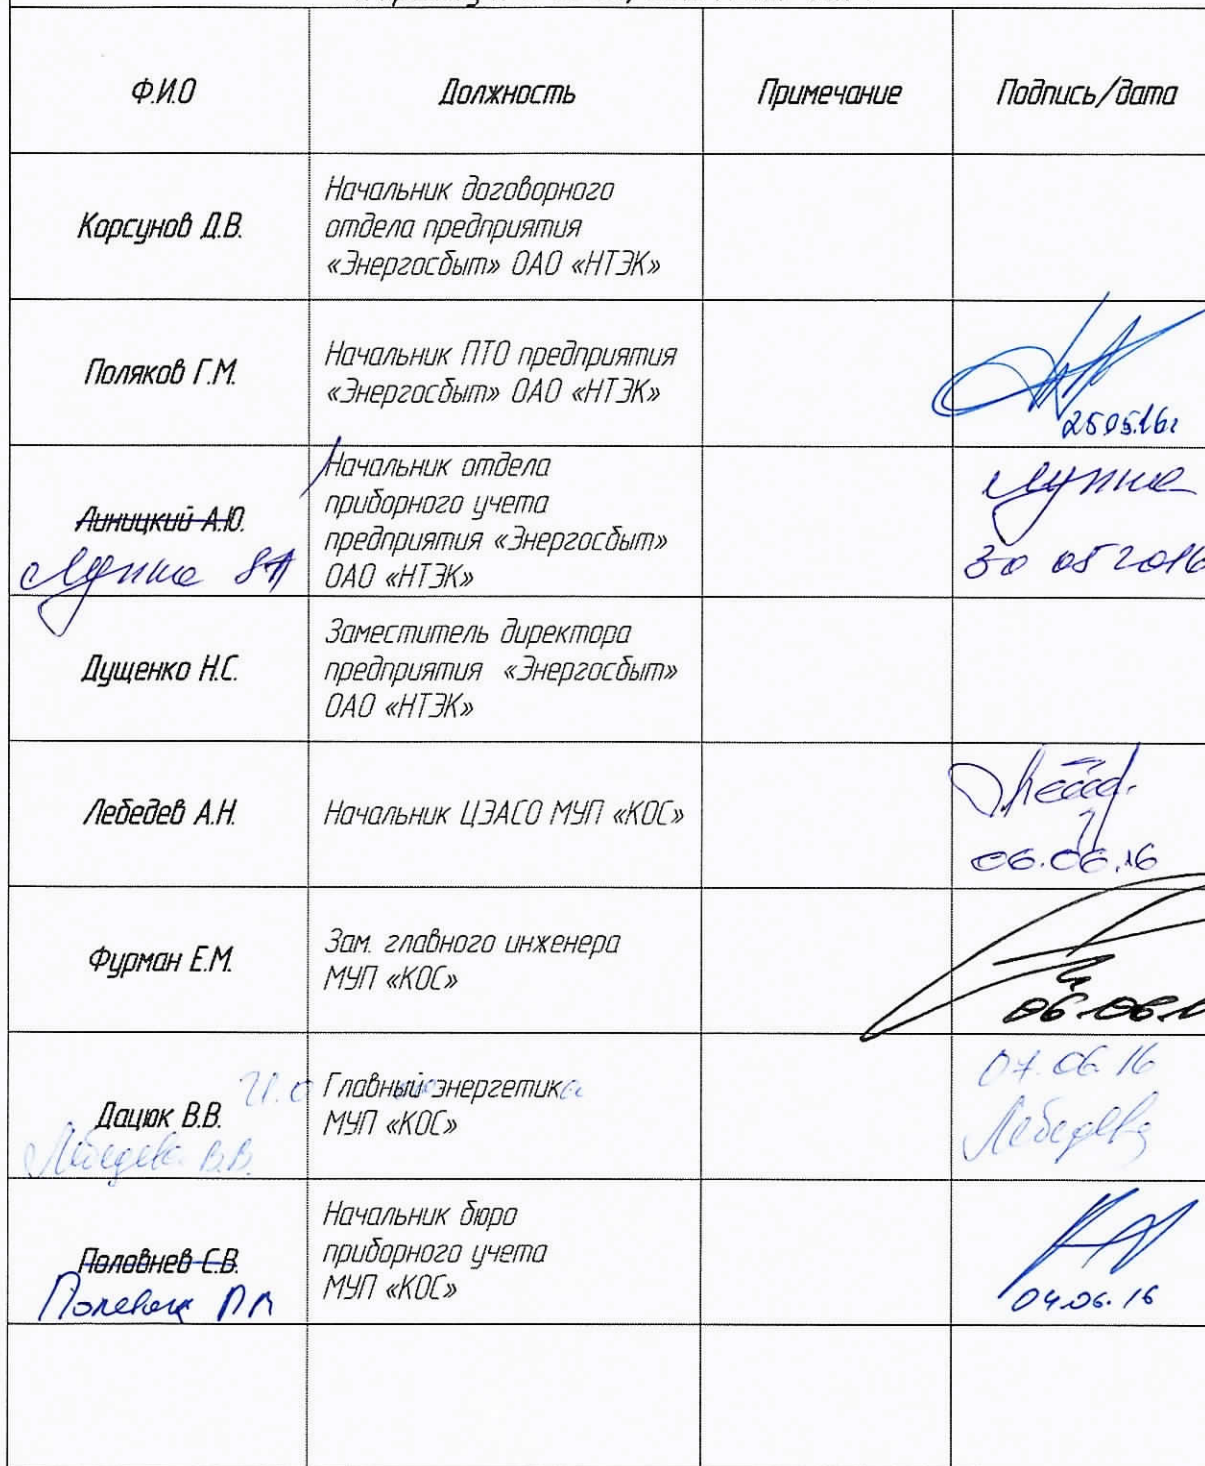 Ф.И.О
Должность
Примечание
Подпись/дата
Корсунов Д.В.
Начальник договорного
отдела предприятия
«Энергосбыт» ОАО «НТЭК»
Поляков Г.М.
Начальник ПТО предприятия
«Энергосбыт» ОАО «НТЭК»
25.05.16г
Линицкий А.Ю.
Начальник отдела
приборного учета
предприятия «Энергосбыт»
ОАО «НТЭК»
30 05 2016
Дущенко Н.С.
Заместитель директора
предприятия «Энергосбыт»
ОАО «НТЭК»
Лебедев А.Н.
Начальник ЦЭАСО МУП «КОС»
06.06.16
Фурман Е.М.
Зам. главного инженера
МУП «КОС»
06.06.1
Дацюк В.В.
Лебедева В.В.
И.о Главный энергетика
МУП «КОС»
07.06.16
Лебедева
Половнев С.В.
Начальник бюро
приборного учета
МУП «КОС»
04.06.16